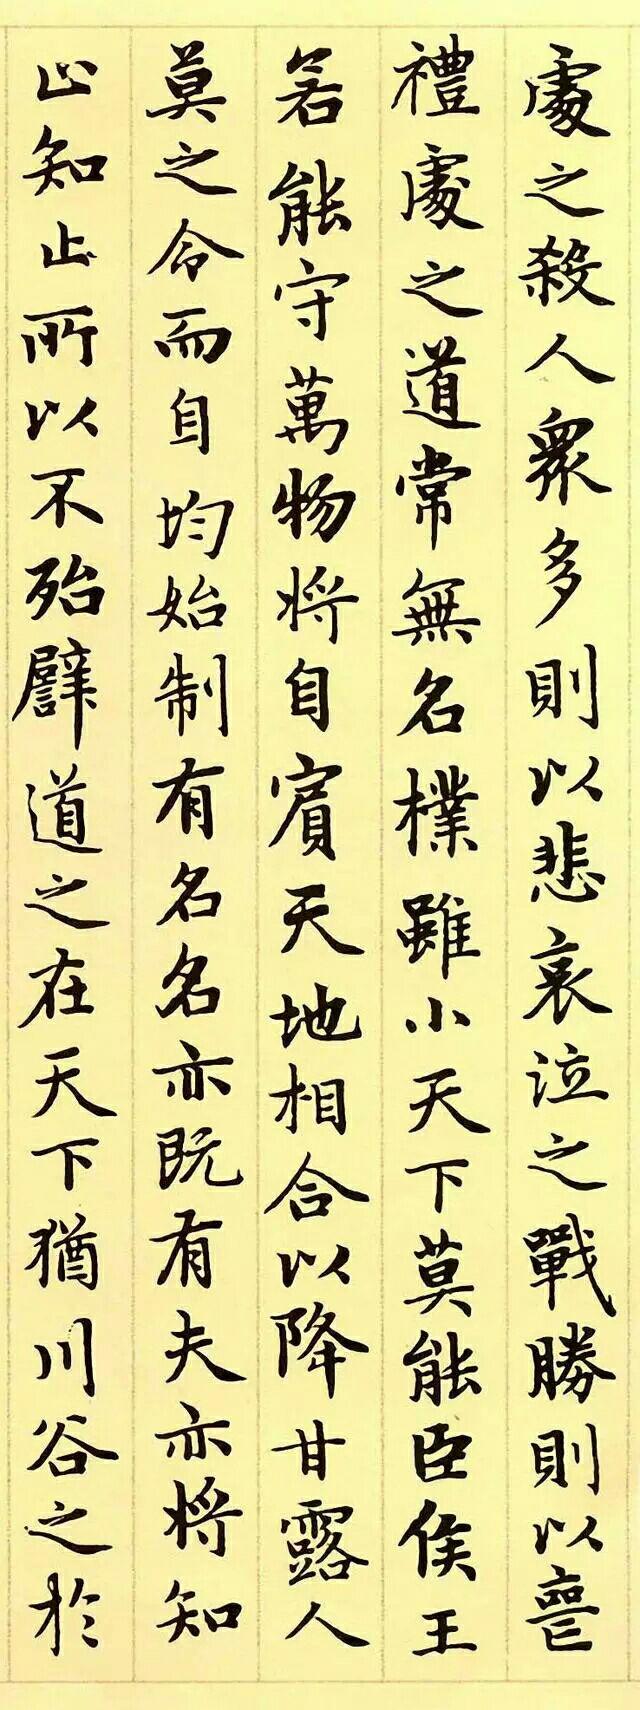 處之殺人衆多則以悲哀泣之戰勝則以喪
禮處之道常無名樸雖小天下莫能臣侯王
若能守萬物將自賓天地相合以降甘露人
莫之令而自均始制有名名亦既有夫亦將知
止知止所以不殆譬道之在天下猶川谷之於